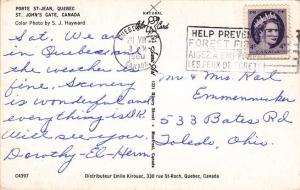 PORTE ST-JEAN, QUEBEC
ST. JOHN'S GATE, CANADA
Color Photo by S. J. Hayward
NATURAL
Sat. We are
in Quebec and
the weather is
fine. Scenery
is wonderful and
everything is O.K.
Will see you.
Dorothy-El-Herm
HELP PREVENT
FOREST FIRES
LES FEUX DE FORET
Mr & Mrs. Karl
Emmenecker
533 Bates Rd
Toledo, Ohio.
C4397
Distributeur Emile Kirouac, 330 rue St-Roch, Quebec, Canada